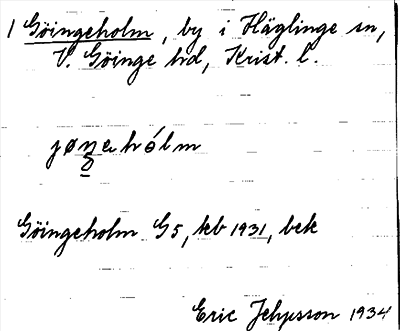 1 Göingeholm, by i Häglinge sn,
V. Göinge hd, Krist. l.
jøŋahólm
Göingeholm G5, kb 1931, bek
Eric 1934